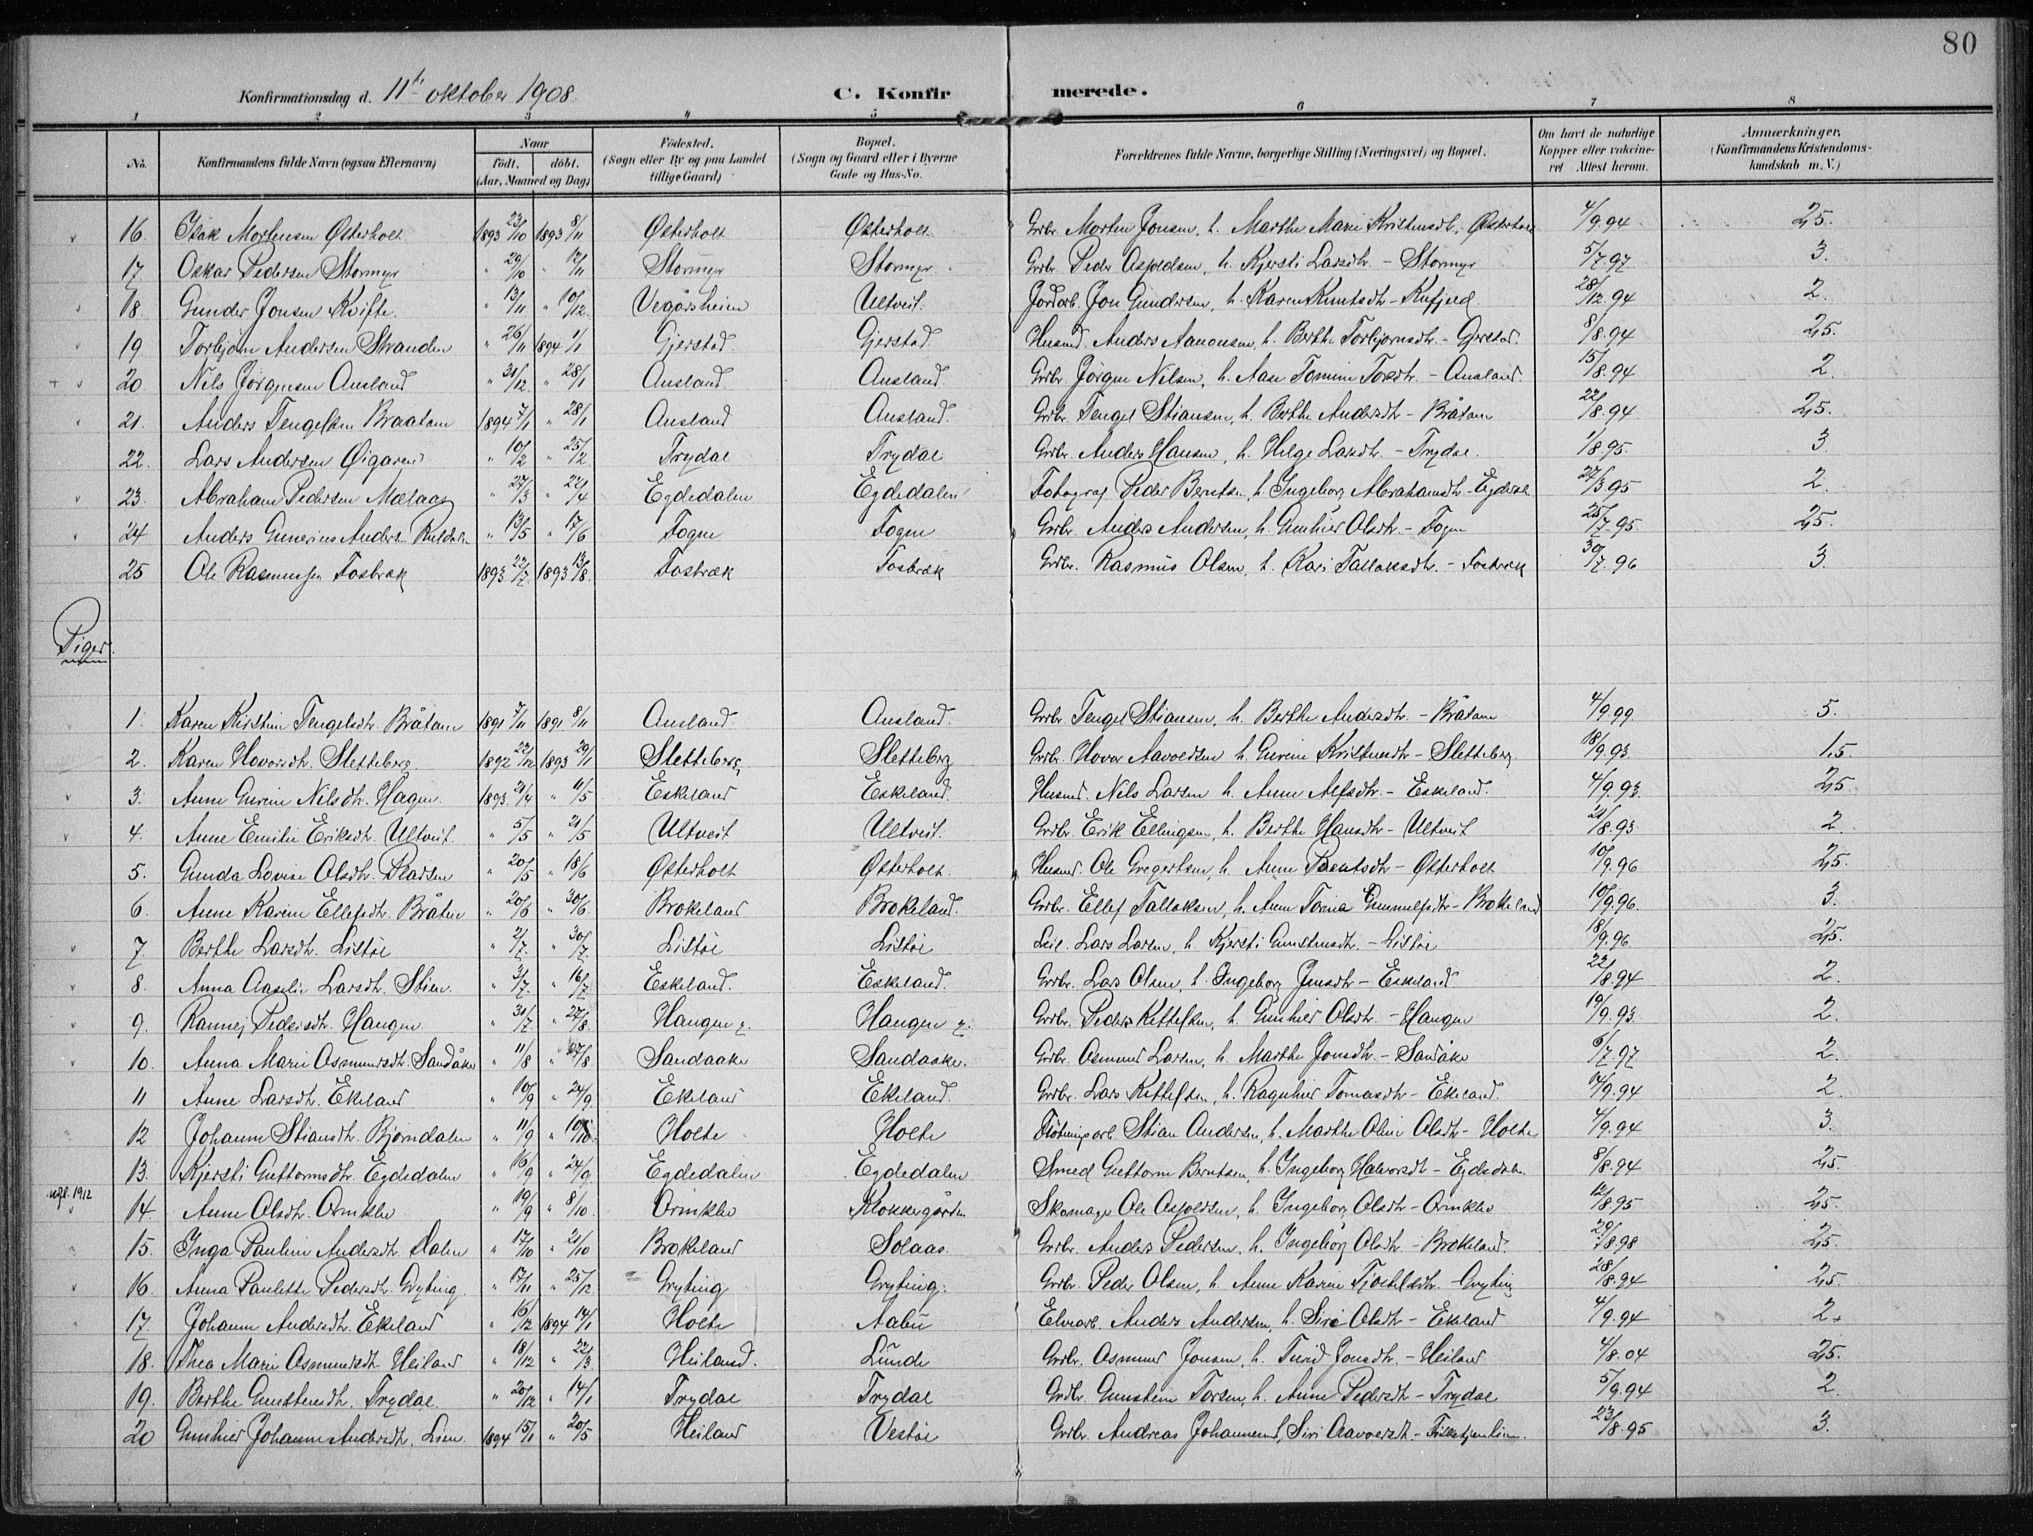 80
Konfirmationsdag d. 11te oktober 1908.
C. Konfirmerede.
1 2 3 4 5 6 7 8
No.
Konfirmandens fulde Navn (ogsaa Efternavn)
Naar
födt. döbt.
(Aar, Maaned og Dag)
Födested.
(Sogn eller By og paa Landet
tillige Gaard)
Bopæl.
(Sogn og Gaard eller i Byerne
Gade og Hus-No.
Forældrenes fulde Navne, borgerlige Stilling (Næringsvei) og Bopæl.
Om havt de naturlige
Kopper eller vakcine-
ret Attest herom.
Anmærkninger,
(Konfirmandens Kristendoms-
kundskab m. V.)
16. Isak Mortensen Østerholt 1893 23/10 1893 8/11 Østerholt Østerholt Grbr. Morten Jonsen, h. Marthe Marie Kristensdtr, Østerholt 4/9.94 2,5.
17. Oskar Pedersen Stormyr " 29/10 " 12/11 Stormyr Stormyr Grbr. Peder Aspeldsen, h. Kjersti Larsdtr. - Stormyr 5/7.97 3.
18. Gunder Jonsen Kvifte " 13/11 " 10/12 Vegårsheien Ultveit. Jordarb. Jon Gundersen, h. Karen Knutsdtr - 28/12.94 2.
19. Torbjørn Andersen Stranden " 26/11 1894 1/1 Gjerstad. Gjerstad. Husmd. Anders Aanonsen, h. Berthe Torbjørnsdtr. - Gjerstad. 8/8.94 2,5.
20 Nils Jørgensen Ausland " 31/12 " 28/1 Ausland. Ausland. Grbr. Jørgen Nilsen, h. Aase Tomine Toredtr. - Ausland. 15/8.94 2.
21. Anders Tengelsen Braaten 1894 7/1 " 28/1 Ausland Ausland. Grbr. Tengel Stiansen, h. Berthe Andersdtr - Bråtane 22/8.94 2,5.
22. Lars Andersen Øigaren " 10/2 " 25/2 Trydal Trydal Grbr. Anders Hansen, h. Helge Larsdtr. - Trydal. 1/8.95. 3.
23. Abraham Pedersen Mælaas " 27/3 " 22/4 Egdedalen Egdedalen Fotograf Peder Berntsen, h. Ingeborg Abrahamsdtr - Egdedal 27/3.95 2.
24 Anders Gunerius Anders. " 13/5 " 17/6 Fogne Fogne Grbr. Anders Andersen, h. Gunhild Olsdtr - Fogne 25/7.95. 2,5.
25 Ole Rasmussen Fosbræk 1893 22/7 1893 13/8. Fosbræk Fosbræk Grbr. Rasmus Olsen, h. Kari Tallaksdtr. - Fosbræk 30/7.96 3.
Piger.
1. Karen Kirstine Tengelsdtr Bråtane 1891 7/11 1891 8/11 Ausland. Ausland. Grbr. Tengel Stiansen, h. Berthe Andersdtr - Bråtane 4/9.99 5.
2. Karen Hovorsdtr. Sletteberg 1892 22/12 1893 29/1 Sletteberg Sletteberg Grbr. Hovor Aavoldsen h. Gurine Kristensdtr - Sletteberg 18/9.93 1.5
3. Anne Gurine Nilsdtr. Hagen. 1893 21/4 " 11/5 Eskeland Eskeland. Husmd. Nils Larsen h. Anne Alfsdtr. - Eskeland. 4/9.93. 2,5.
4. Anne Emilie Eriksdtr. Ultveit. " 5/5 " 21/5 Ultveit Ultveit. Grbr. Erik Ellingsen, h. Berthe Hansdtr - Ultveit 21/8.93 2.
5. Gunda Lovise Olsdtr. Pladsen " 20/5 " 18/6 Østerholt Østerholt. Husmd. Ole Gregertsen, h. Anne Berntsdtr - Østerholt 10/9.96 2,5.
6. Anne Karine Ellefsdtr. Bråten " 20/6 " 30/6. Brokeland Brokeland. Grbr. Ellef Tallaksen, h. Anne Tomine Gunnulfsdtr - Brokeland 10/9.96. 3.
7. Berthe Larsdtr. Listøl " 2/7. " 30/7. Listøl Listøl Leil. Lars Larsen, h. Kjersti Gunstensdtr. - Listøl 18/9.96 2,5.
8. Anna Aaselie Larsdtr. Stien " 3/7. " 16/7 Eskeland. Eskeland. Grbr. Lars Olsen, h. Ingeborg Jensdtr - Eskeland 22/8.94 2.
9. Rannej Pedersdtr. Haugen " 31/7. " 27/8. Haugen y. Haugen y. Grbr. Peder Kittelsen, h. Gunhild Olsdtr. - Haugen 19/9.93. 2.
10. Anna Marie Osmundsdtr. Sandåker " 11/8 " 27/8 Sandaake Sandaake. Grbr. Osmund Larsen, h. Marthe Jonsdtr. - Sandåke 6/7.97 2.
11 Anne Larsdtr. Ekeland " 10/9 " 24/9. Ekeland Ekeland. Grbr. Lars Kittelsen, h. Ragnhild Tomasdtr - Ekeland. 14/9.94 2.
12 Johanne Stiansdtr. Bjørndalen " 11/9 " 10/10. Holte Holte Fløtningsarb. Stian Andersen, h. Marthe Oline Olsdtr - Holte 4/9.94 3.
13. Kjersti Guttormsdtr. Egdedalen " 16/9 " 24/9. Egdedalen Egdedalen Smed Guttorm Berntsen, h. Ingeborg Halvorsdtr - Egdedalen 8/8.94 2,5.
udfl. 1912
14. Anne Olsdtr. Ormklev " 19/9 " 8/10. Ormklev Klokkergården Skomager Ole Aspeldsen, h. Ingeborg Olsdtr - Ormklev 12/8.95 2,5.
15. Inga Pauline Andersdtr. Dalen " 17/10 " 21/10 Brokeland Solaas. Grbr. Anders Pedersen, h. Ingeborg Olsdtr - Brokeland. 29/8.98 2,5.
16. Anna Paulette Pedersdtr. Gryting. " 17/11 " 25/12. Gryting Gryting. Grbr. Peder Olsen, h. Anne Karine Tjostelsdtr. - Gryting 28/8.94 2,5.
17. Johanne Andersdtr. Ekeland " 16/12 1894 14/1 Holte Aabu Elvearb. Anders Andersen, h. Siri Olsdtr - Ekeland 4/9.94 2.
18. Thea Marie Osmundsdtr Heiland " 18/12 " 22/3. Heiland. Lunde Grbr. Osmund Jonsen, h. Turid Jonsdtr. - Heiland 4/8.04 2,5.
19. Berthe Gunstensdtr. Trydal. " 20/12 " 14/1 Trydal Trydal Grbr. Gunstein Torsen, h. Anne Pedersdtr - Trydal 5/9.94 2.
20 Gunhild Johanne Andersdtr. Lien. 1894 15/1 " 20/5 Heiland Vestøl Grbr. Andreas Johannesen, Siri Aavoldsdtr. - 23/8.95 3.